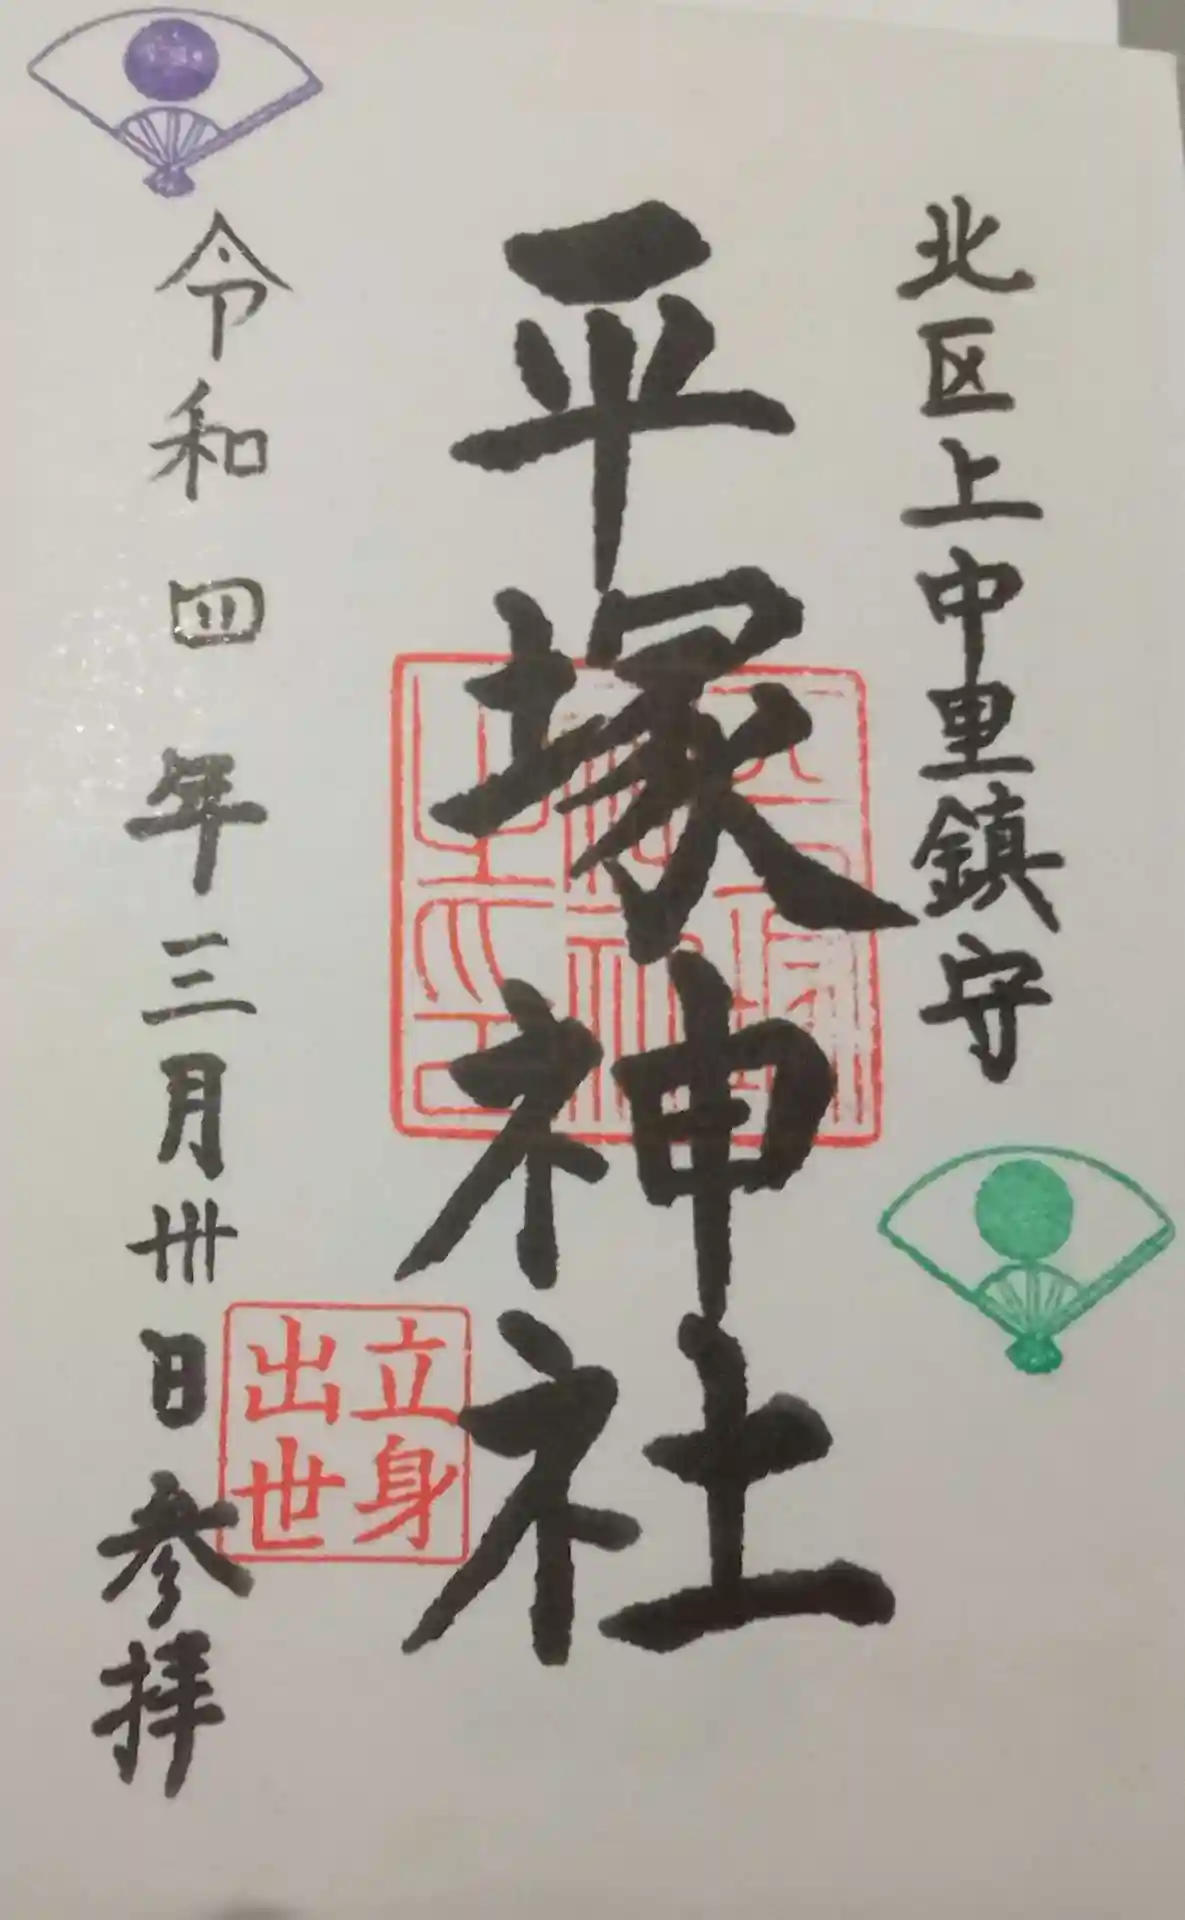 北区上中里鎮守
平塚神社
平塚神社之印
立身出世
令和四年三月卅日参拝